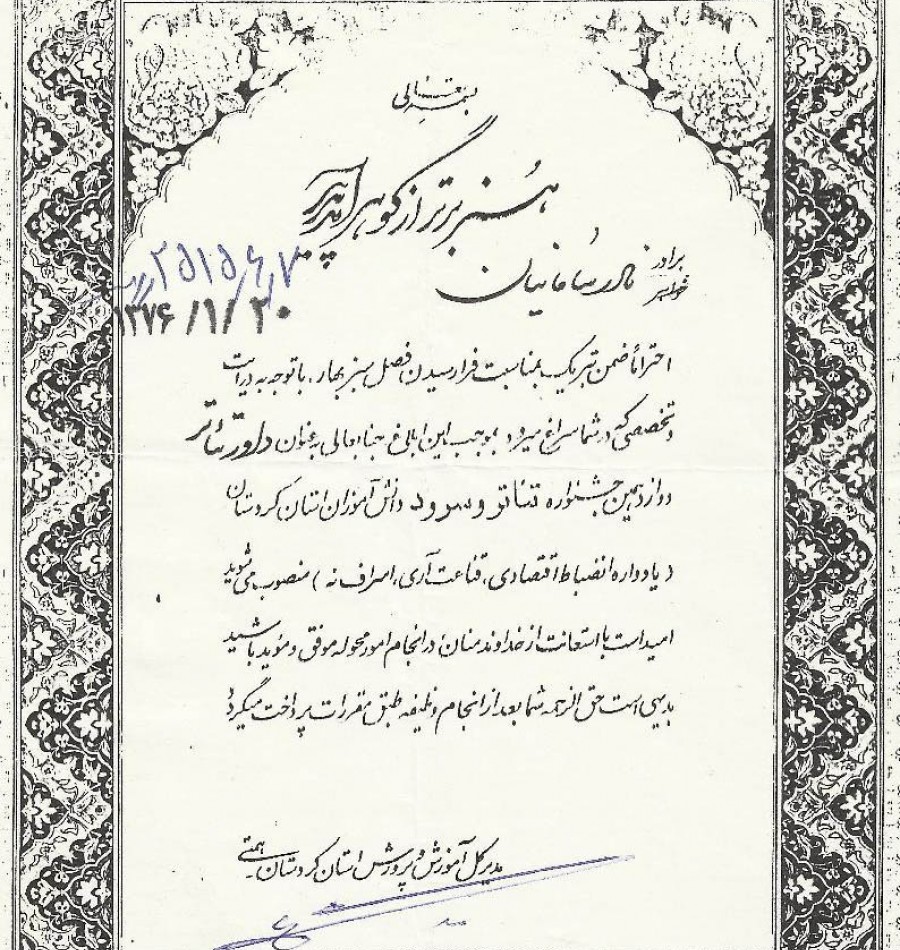 بسمه تعالی
هنر برتر از گوهر آمد پدید
برادر
خواهر
نادر سامانیان
۲۵۱۵/۶/۷
۱۳۷۶/۱/۲۰
احتراماً ضمن تبریک بمناسبت فرارسیدن فصل سبز بهار، با توجه به درایت
و تخصصی که در شما سراغ میرود بموجب این ابلاغ جنابعالی بعنوان داور تئاتر
دوازدهمین جشنواره تئاتر و سرود دانش آموزان استان کردستان
(یادواره انضباط اقتصادی، قناعت آری، اسراف نه) منصوب می شوید
امید است با استعانت از خداوند منان در انجام امور محوله موفق و مؤید باشید
بدیهی است حق الزحمه شما بعد از انجام وظیفه طبق مقررات پرداخت میگردد
مدیر کل آموزش و پرورش استان کردستان ـ همتی